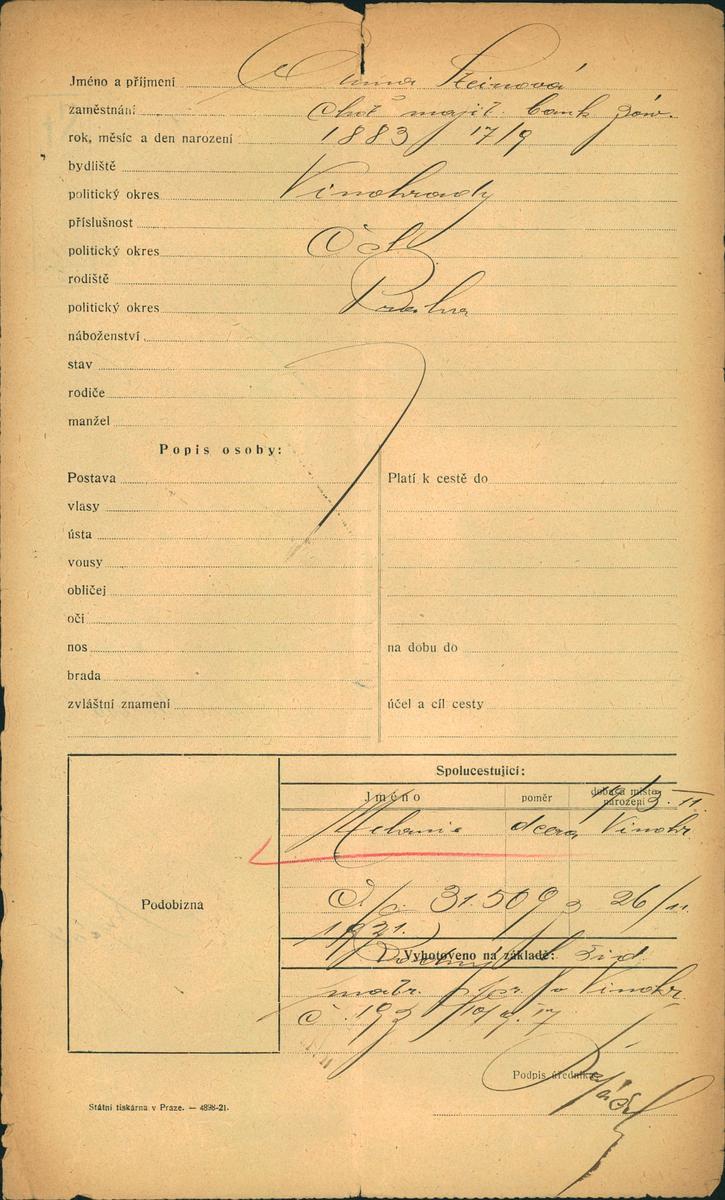 Jméno a příjmení Anna Steinová
zaměstnání choť majit. bank. záv.
rok, měsíc a den narození 1883 17/9
bydliště
politický okres Vinohrady
příslušnost
politický okres ČSl
rodiště
politický okres Praha
náboženství
stav
rodiče
manžel
Popis osoby:
Postava
vlasy
ústa
vousy
obličej
oči
nos
brada
zvláštní znamení
Platí k cestě do
na dobu do
účel a cíl cesty
Podobizna
Spolucestující:
Jméno poměr doba a místo narození
Melanie dcera Vinohr.
31.509 26/11.
1921.
Vyhotoveno na základě: žid.
matr. Vinohr.
č. 193
Podpis úředníka
Státní tiskárna v Praze. — 4898-21.